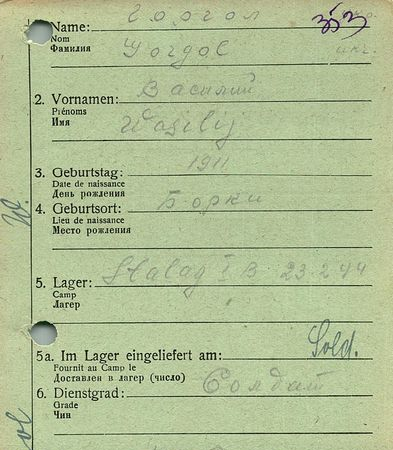 Name: Горгол 353
Nom
Фамилия Gorgol
2. Vornamen: Василий
Prénoms
Имя Wasilij
3. Geburtstag: 1911
Date de naissance
День рождения
4. Geburtsort: Борки
Lieu de naissance
Место рождения
W.
5. Lager: Stalag I B 23.2.44
Camp
Лагер
5a. Im Lager eingeliefert am: Sold.
Fournit au Camp le
Доставлен в лагер (число)
6. Dienstgrad: Солдат
Grade
Чин
ol